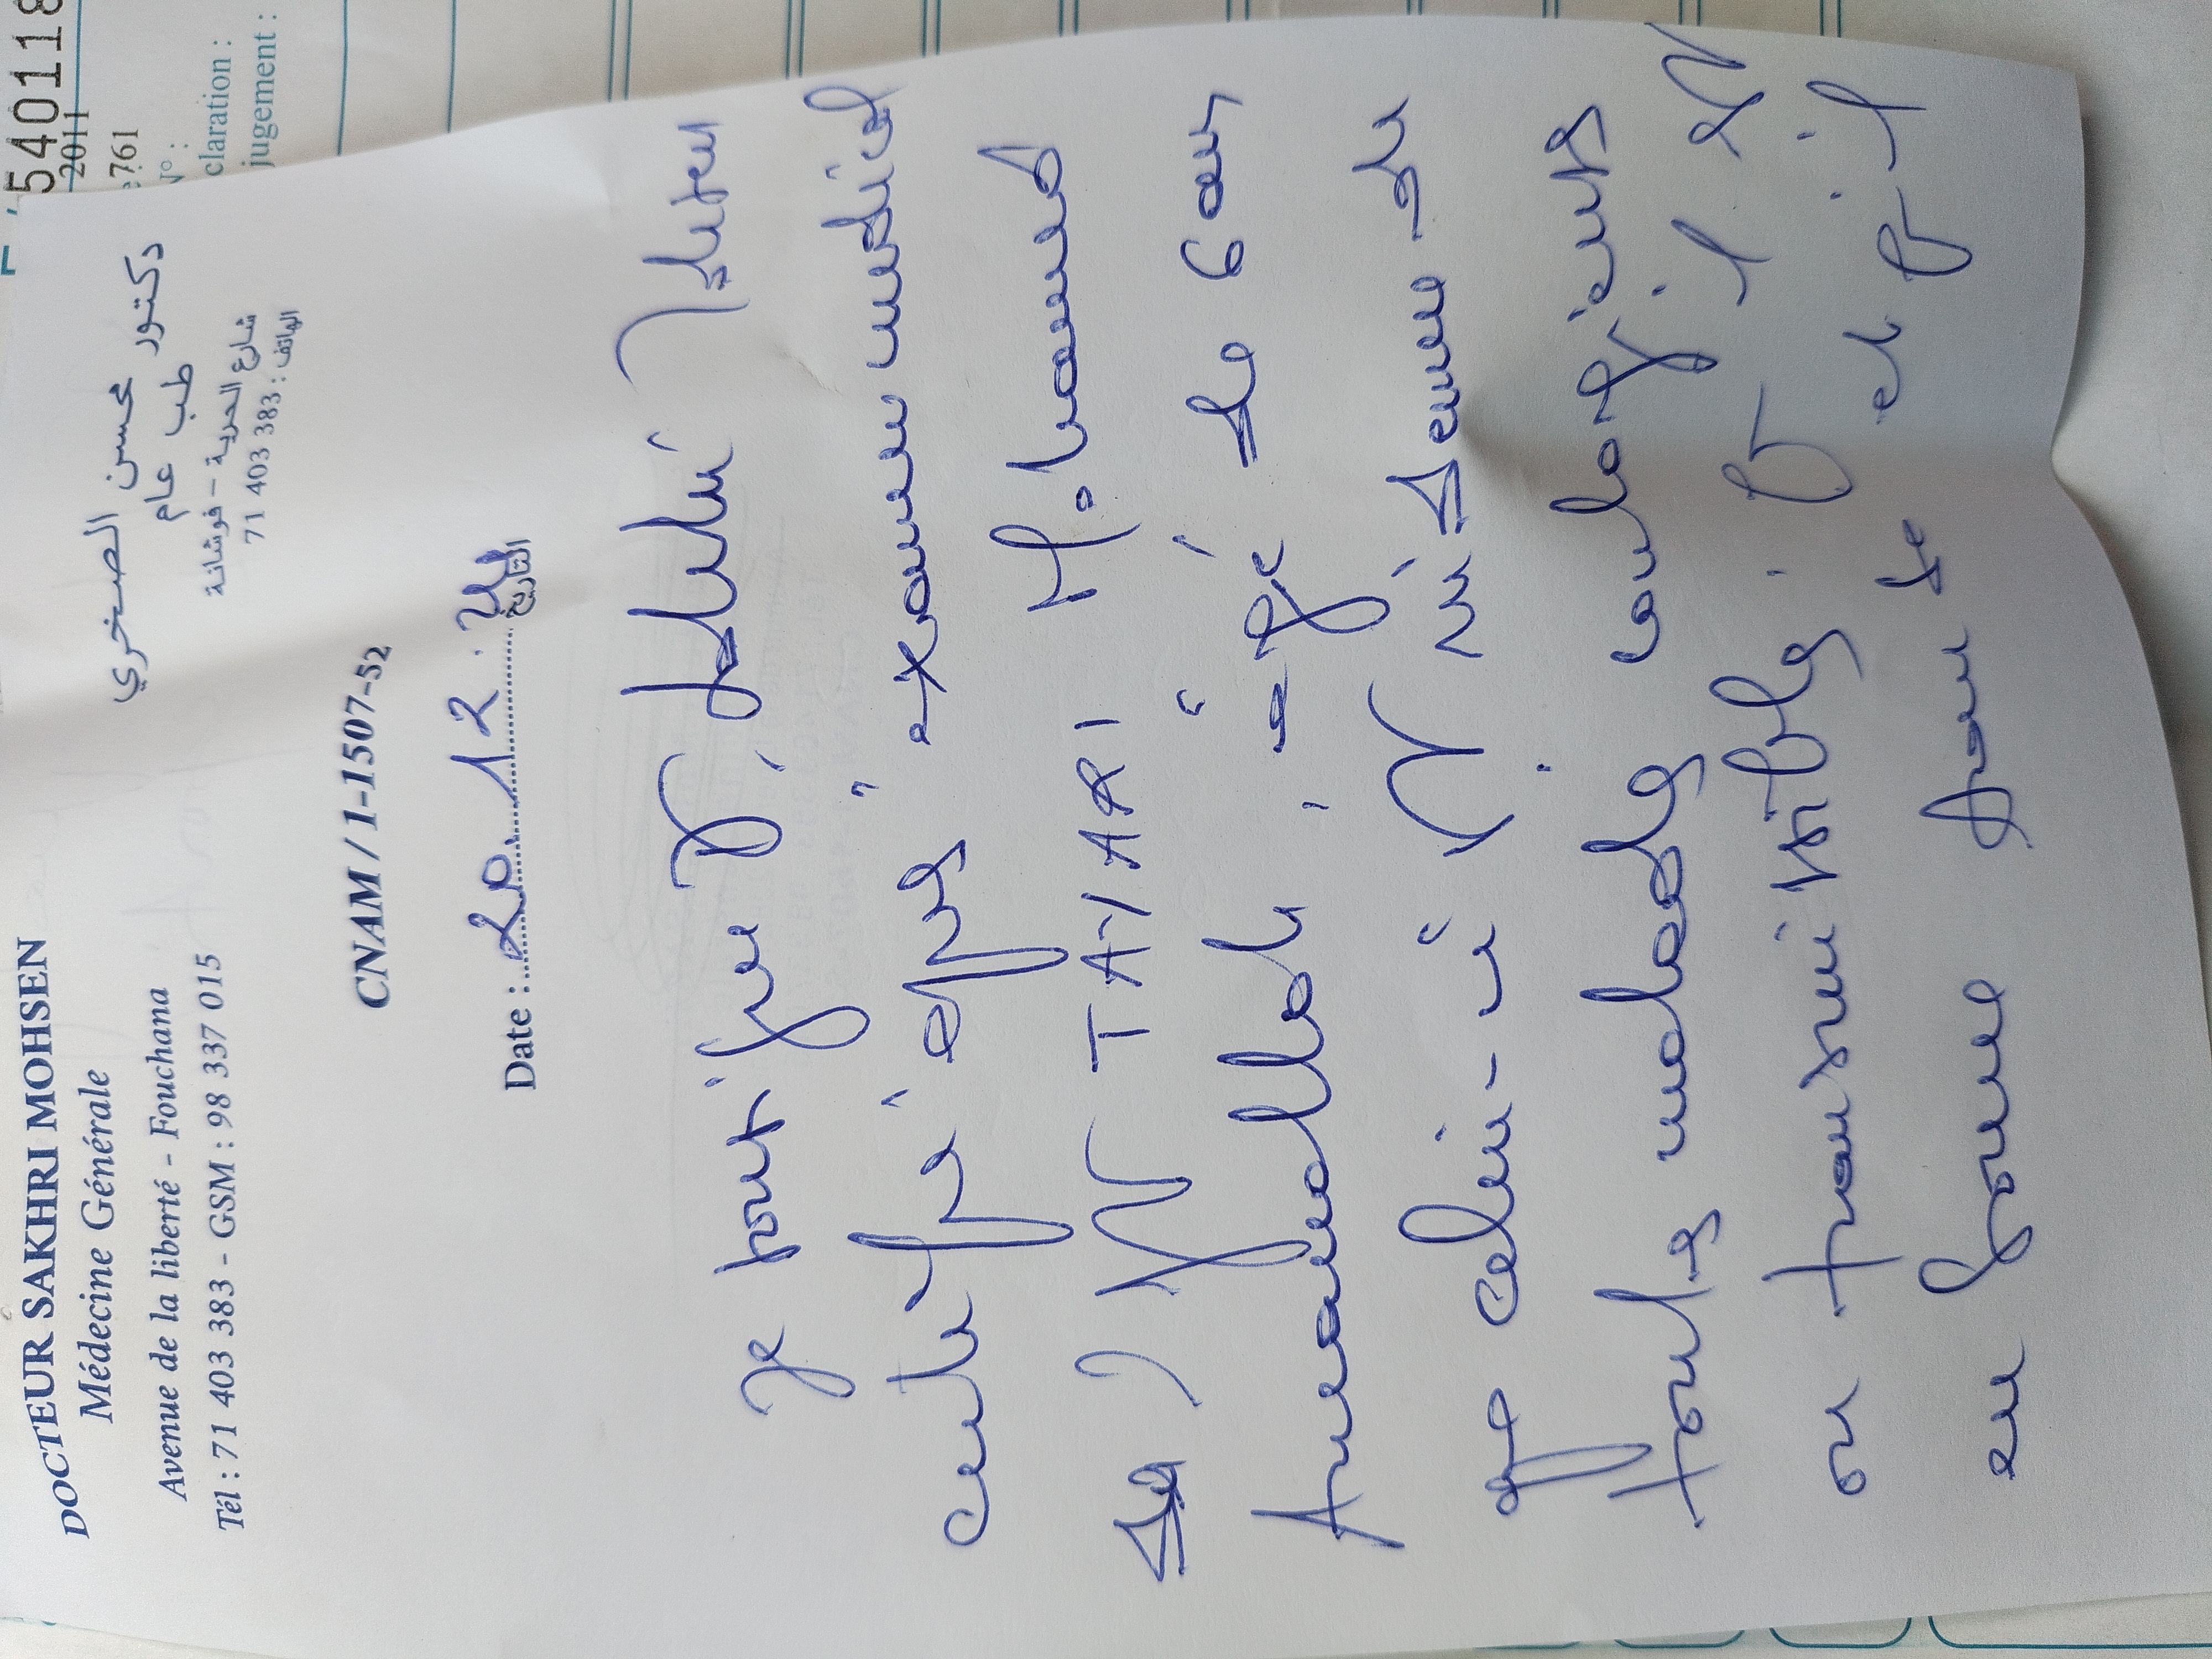 540118
2011
761
N° :
claration :
jugement :
DOCTEUR SAKHRI MOHSEN
Médecine Générale
Avenue de la liberté - Fouchana
Tél : 71 403 383 - GSM : 98 337 015
دكتور محسن الصخري
طب عام
شارع الحرية - فوشانة
الهاتف : 71 403 383
CNAM / 1-1507-52
Date : 20.12. التاريخ
Je Dr
certifie après examen médical
de Mr TAYARI Mohamed
âgé de ans
que celui-ci est indemne de
toutes maladies contagieuses
ou transmissibles. et qu'il
en bonne santé